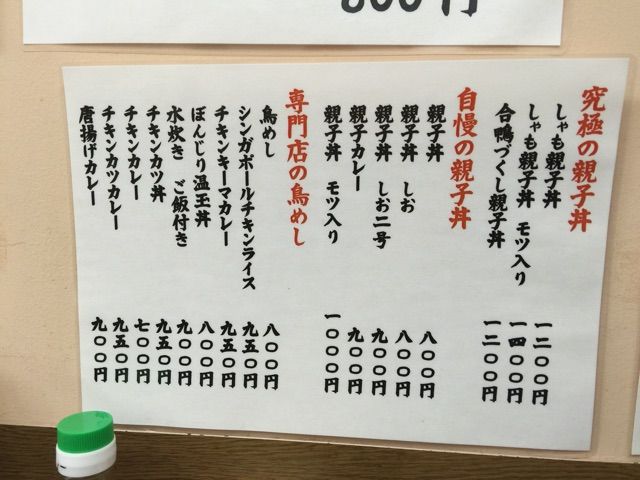 800円
究極の親子丼
しゃも親子丼 一二〇〇円
しゃも親子丼 モツ入り 一四〇〇円
合鴨づくし親子丼 一二〇〇円
自慢の親子丼
親子丼 八〇〇円
親子丼 しお 八〇〇円
親子丼 しお二号 九〇〇円
親子カレー 九〇〇円
親子丼 モツ入り 一〇〇〇円
専門店の鳥めし
鳥めし 八〇〇円
シンガポールチキンライス 九五〇円
チキンキーマカレー 九五〇円
ぼんじり温玉丼 八〇〇円
水炊き ご飯付き 九〇〇円
チキンカツ丼 九五〇円
チキンカレー 七〇〇円
チキンカツカレー 九五〇円
唐揚げカレー 九〇〇円